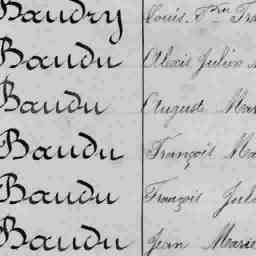 Baudry Louis Fçois
Baudu Alexis Julien
Baudu Auguste Mar
Baudu François Ma
Baudu François Jul
Baudu Jean Marie